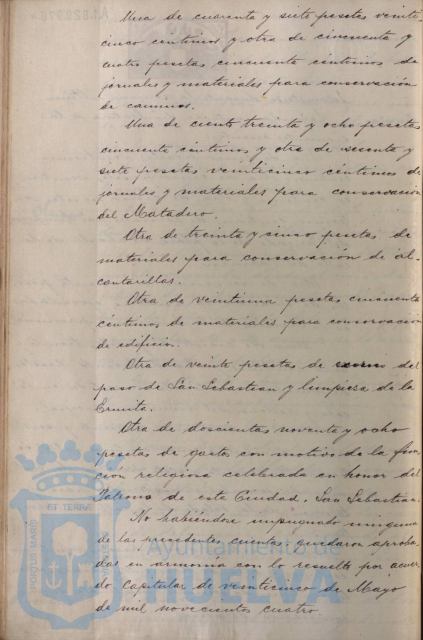 Una de cuarenta y siete pesetas veinte
cinco céntimos y otra de cincuenta y
cuatro pesetas cincuenta céntimos de
jornales y materiales para conservación
de caminos.
Una de ciento treinta y ocho pesetas
cincuenta céntimos y otra de sesenta y
siete pesetas veinticinco céntimos de
jornales y materiales para conservación
del Matadero.
Otra de treinta y cinco pesetas de
materiales para conservación de al-
cantarillas.
Otra de veintiuna pesetas cincuenta
céntimos de materiales para conservación
de edificios.
Otra de veinte pesetas de exorno del
paso de San Sebastian y limpieza de la
Ermita.
Otra de doscientas noventa y ocho
pesetas de gastos con motivo de la fun-
cion religiosa celebrada en honor del
Patrono de esta Ciudad, San Sebastian.
No habiéndose impugnado ninguna
de las precedentes cuentas quedaron aproba-
das en armonia con lo resuelto por acuer-
do capitular de veinticinco de Mayo
de mil novecientos cuatro
PORTUS MARIS ET TERRAE
Ayuntamiento de
HUELVA